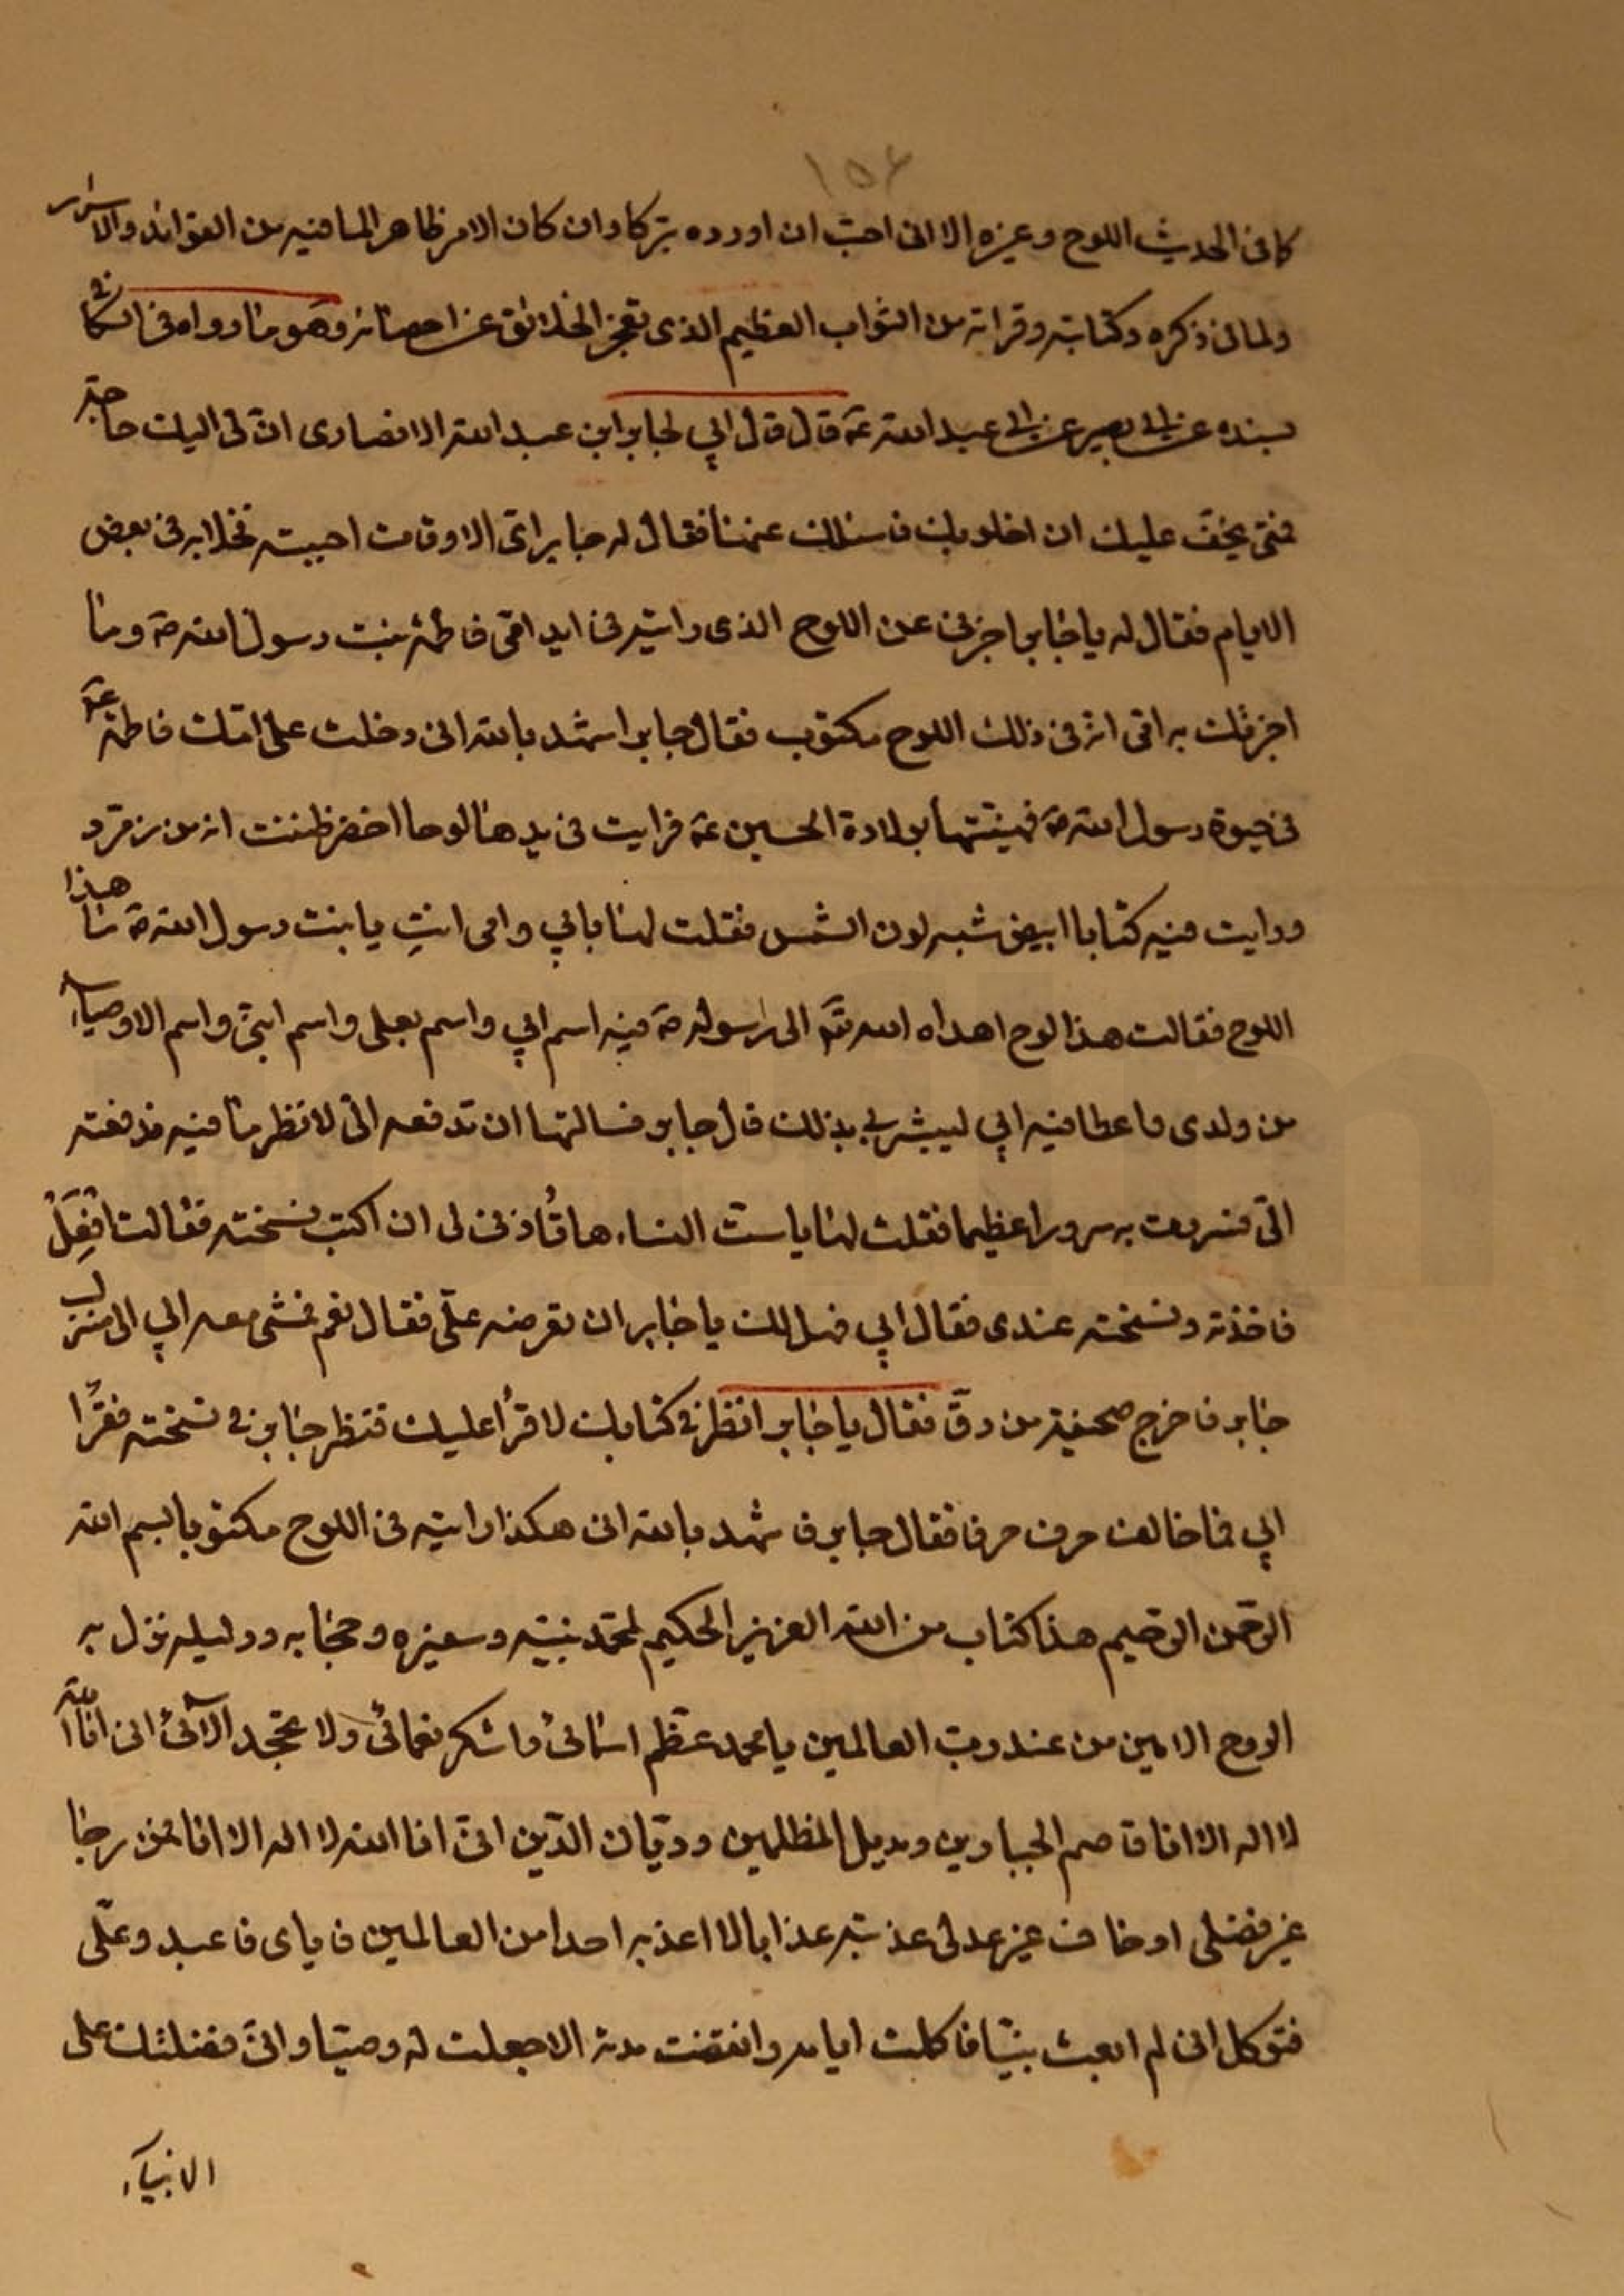 ١٥٤
كما فى الحديث اللوح وغيره الا انى احبّ ان اورده تبركا وان كان الامر ظاهر الما فيه من الفوائد والاسرار
ولما فى ذكره وكتابته وقراته من الثواب العظيم الذى تعجز الخلائق عن احصائه وهو ما رواه فى الكافى
بسنده عن ابى بصير عن ابى عبد الله عم قال قال ابي لجابر ابن عبد الله الانصارى انّ لى اليك حاجة
فمتى يخفّ عليك ان اخلو بك فاسئلك عنها فقال له جابر اىّ الاوقات احببته فخلا به فى بعض
الايام فقال له يا جابر اخبرنى عن اللوح الذى رايته فى ايد امّى فاطمة بنت رسول الله ص وما
اخبرتك به امّى انه فى ذلك اللوح مكتوب فقال جابر اشهد بالله انى دخلت على امّك فاطمة عم
فى حيوة رسول الله ص فهنيتها بولادة الحسين عم فرايت فى يدها لوحا اخضر ظننت انه من زمرّد
ورايت فيه كتابا ابيض شبه لون الشمس فقلت لها بابي وامى انتِ يا بنت رسول الله ص ما هذا
اللوح فقالت هذا لوح اهداه الله تعم الى رسوله ص فيه اسم ابي واسم بعلى واسم ابنىّ واسم الاوصياء
من ولدى واعطانيه ابي ليبشرنى بذلك قال جابر فسالتها ان تدفعه الىّ لانظر ما فيه فدفعته
الىّ فسررت به سرورا عظيما فقلت لها يا ست النساء هل تأذنى لى ان اكتب نسخته فقالت افعل
فاخذته ونسخته عندى فقال ابي فهل لك يا جابر ان تعرضه علىّ فقال نعم فمشى معه ابي الى منزل
جابر فاخرج صحيفة من رقّ فقال يا جابر انظر فى كتابك لاقرأ عليك فنظر جابر فى نسخته فقرأ
ابي فما خالف حرف حرفا فقال جابر فاشهد بالله انى هكذا رايته فى اللوح مكتوبا بسم الله
الرحمن الرحيم هذا كتاب من الله العزيز الحكيم لمحمّد نبيّه وسفيره وحجابه ودليله نزل به
الروح الامين من عند ربّ العالمين يا محمد عظّم اسمائى واشكر نعمائى ولا تجحد الآئى انى انا الله
لا اله الا انا قاصم الجبارين ومديل المظلمين وديّان الدّين انّى انا الله لا اله الا انا فمن رجا
غير فضلى او خاف غير عدلى عذبته عذابا لا اعذبه احدا من العالمين فاياى فاعبد وعلّى
فتوكل انى لم ابعث نبيّا فاكملت ايامه وانقضت مدته الا جعلت له وصيّا وانّى فضلتك على
الانبياء